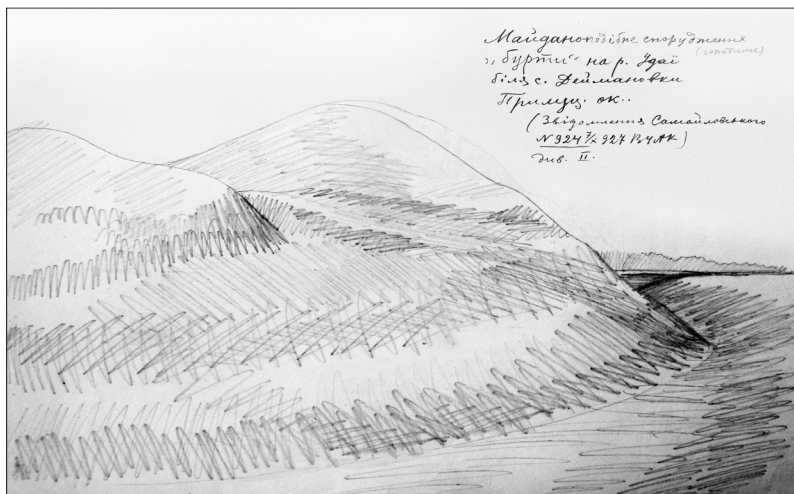 Майданоподібне спорудження
(городище)
„бурти“ на р. Удаї
біля с. Деймановки
Прилуц. ок..
(Звідомлення Самойловського
№ 924 7/X 927 ВУАК)
див. II.